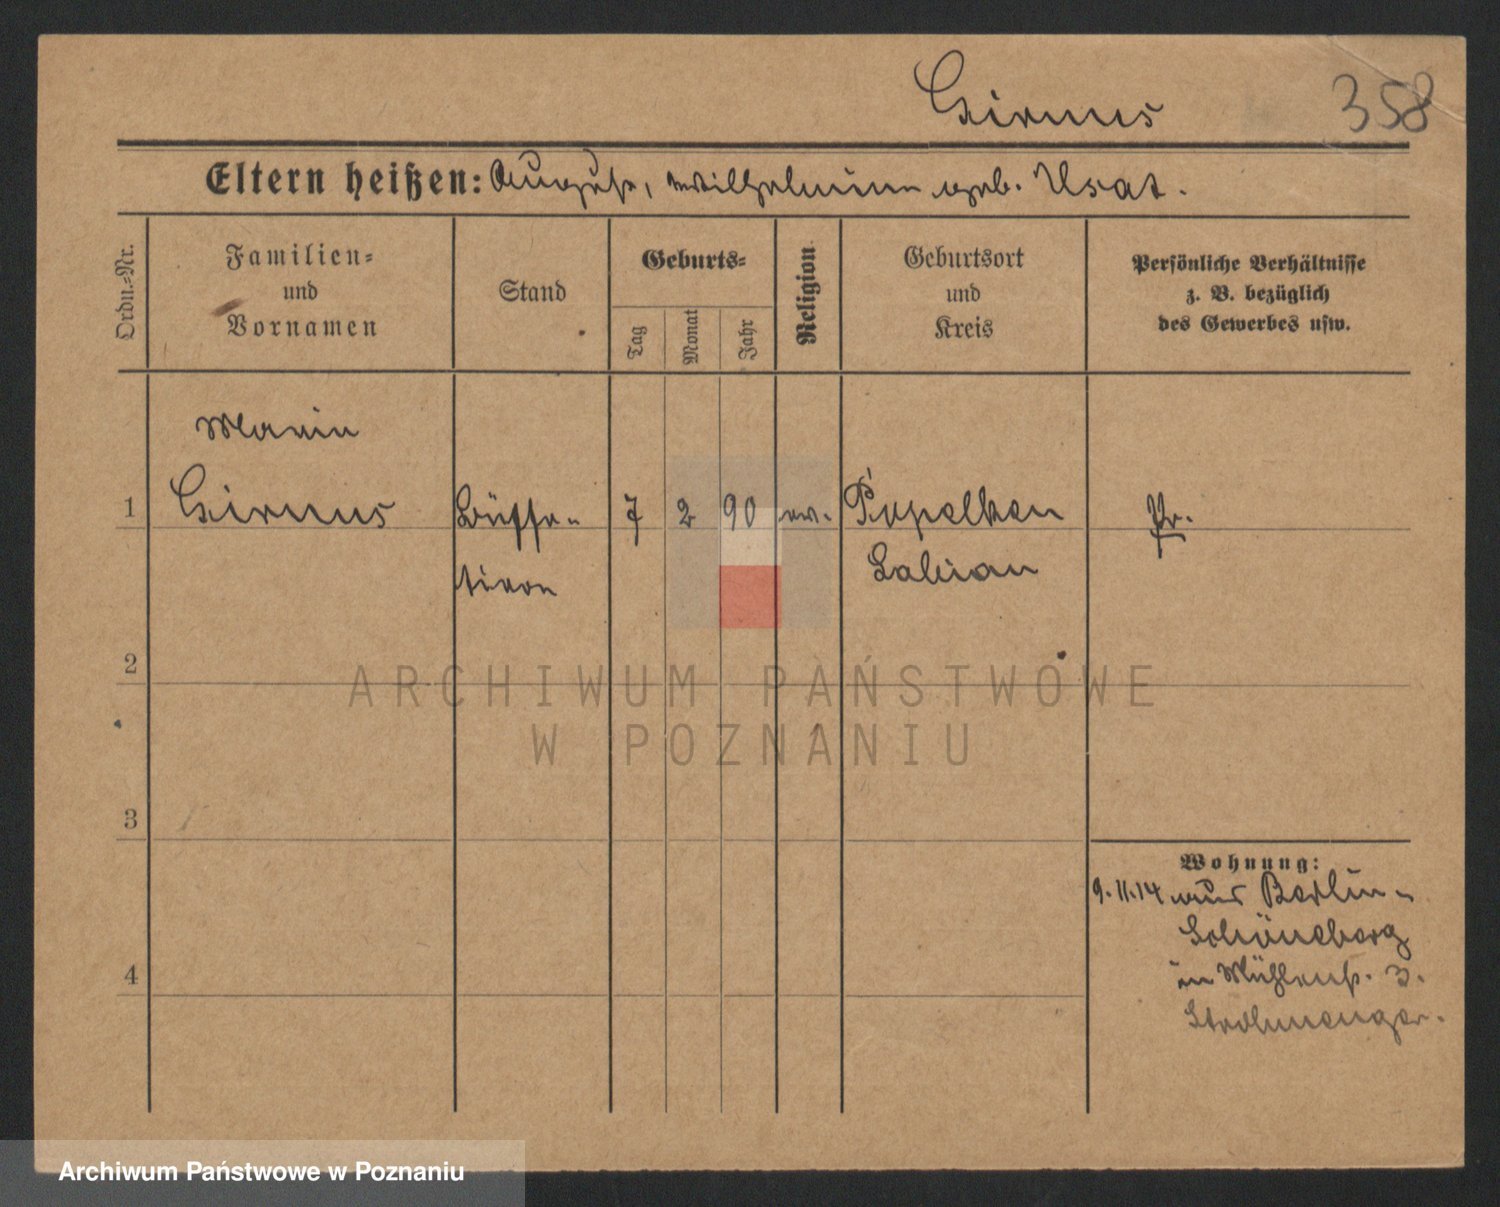 Girnus 358
Eltern heißen: August, Wilhelmine geb. Usat.
Ordn.-Nr.
Familien-
und
Vornamen
Stand
Geburts-
Tag
Monat
Jahr
Religion
Geburtsort
und
Kreis
Persönliche Verhältnisse
z. B. bezüglich
des Gewerbes usw.
Marie
1 Girnus Büffe- 7 2 90 ev. Popelken Pr.
tieren
Labiau
2
ARCHIWUM PAŃSTWOWE
W POZNANIU
3
Wohnung:
9.11.14 aus Berlin-
Schöneberg
in Mühlenstr. 3.
Strohmenger.
4
Archiwum Państwowe w Poznaniu